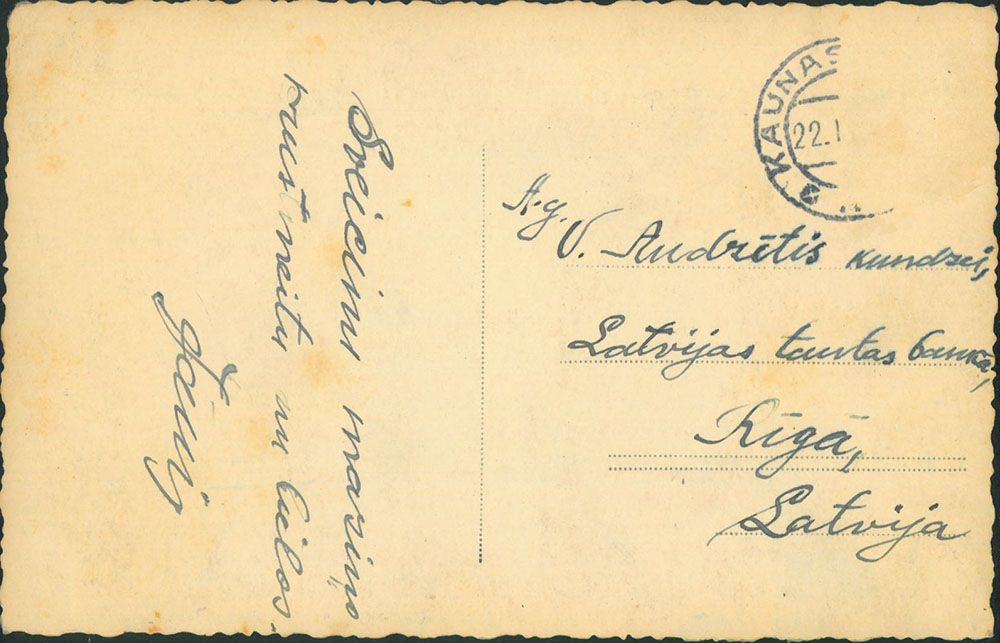 Sveicinu maziņo
krustmeitu un lielos.
Jānis
KAUNAS
22.I
A.g.
V. Andzētis kundzei,
Latvijas tautas bankā,
Rīgā,
Latvija